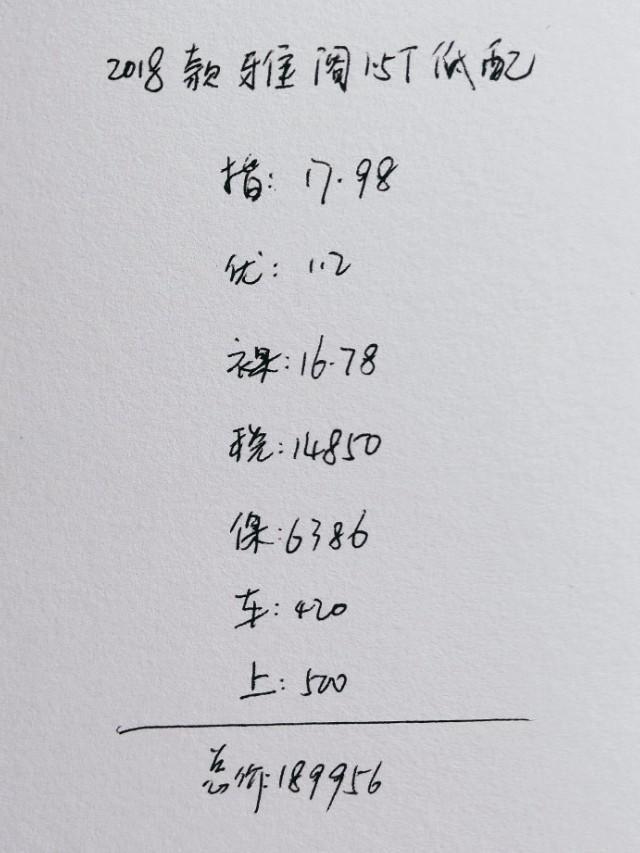 2018款雅阁1.5T低配
指: 17.98
优: 1.2
裸: 16.78
税: 14850
保: 6386
车: 420
上: 500
总价: 189956